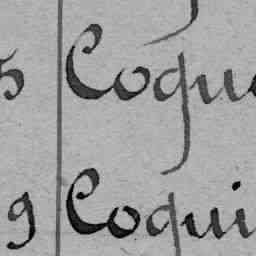 5 Coqu
9 Coqui